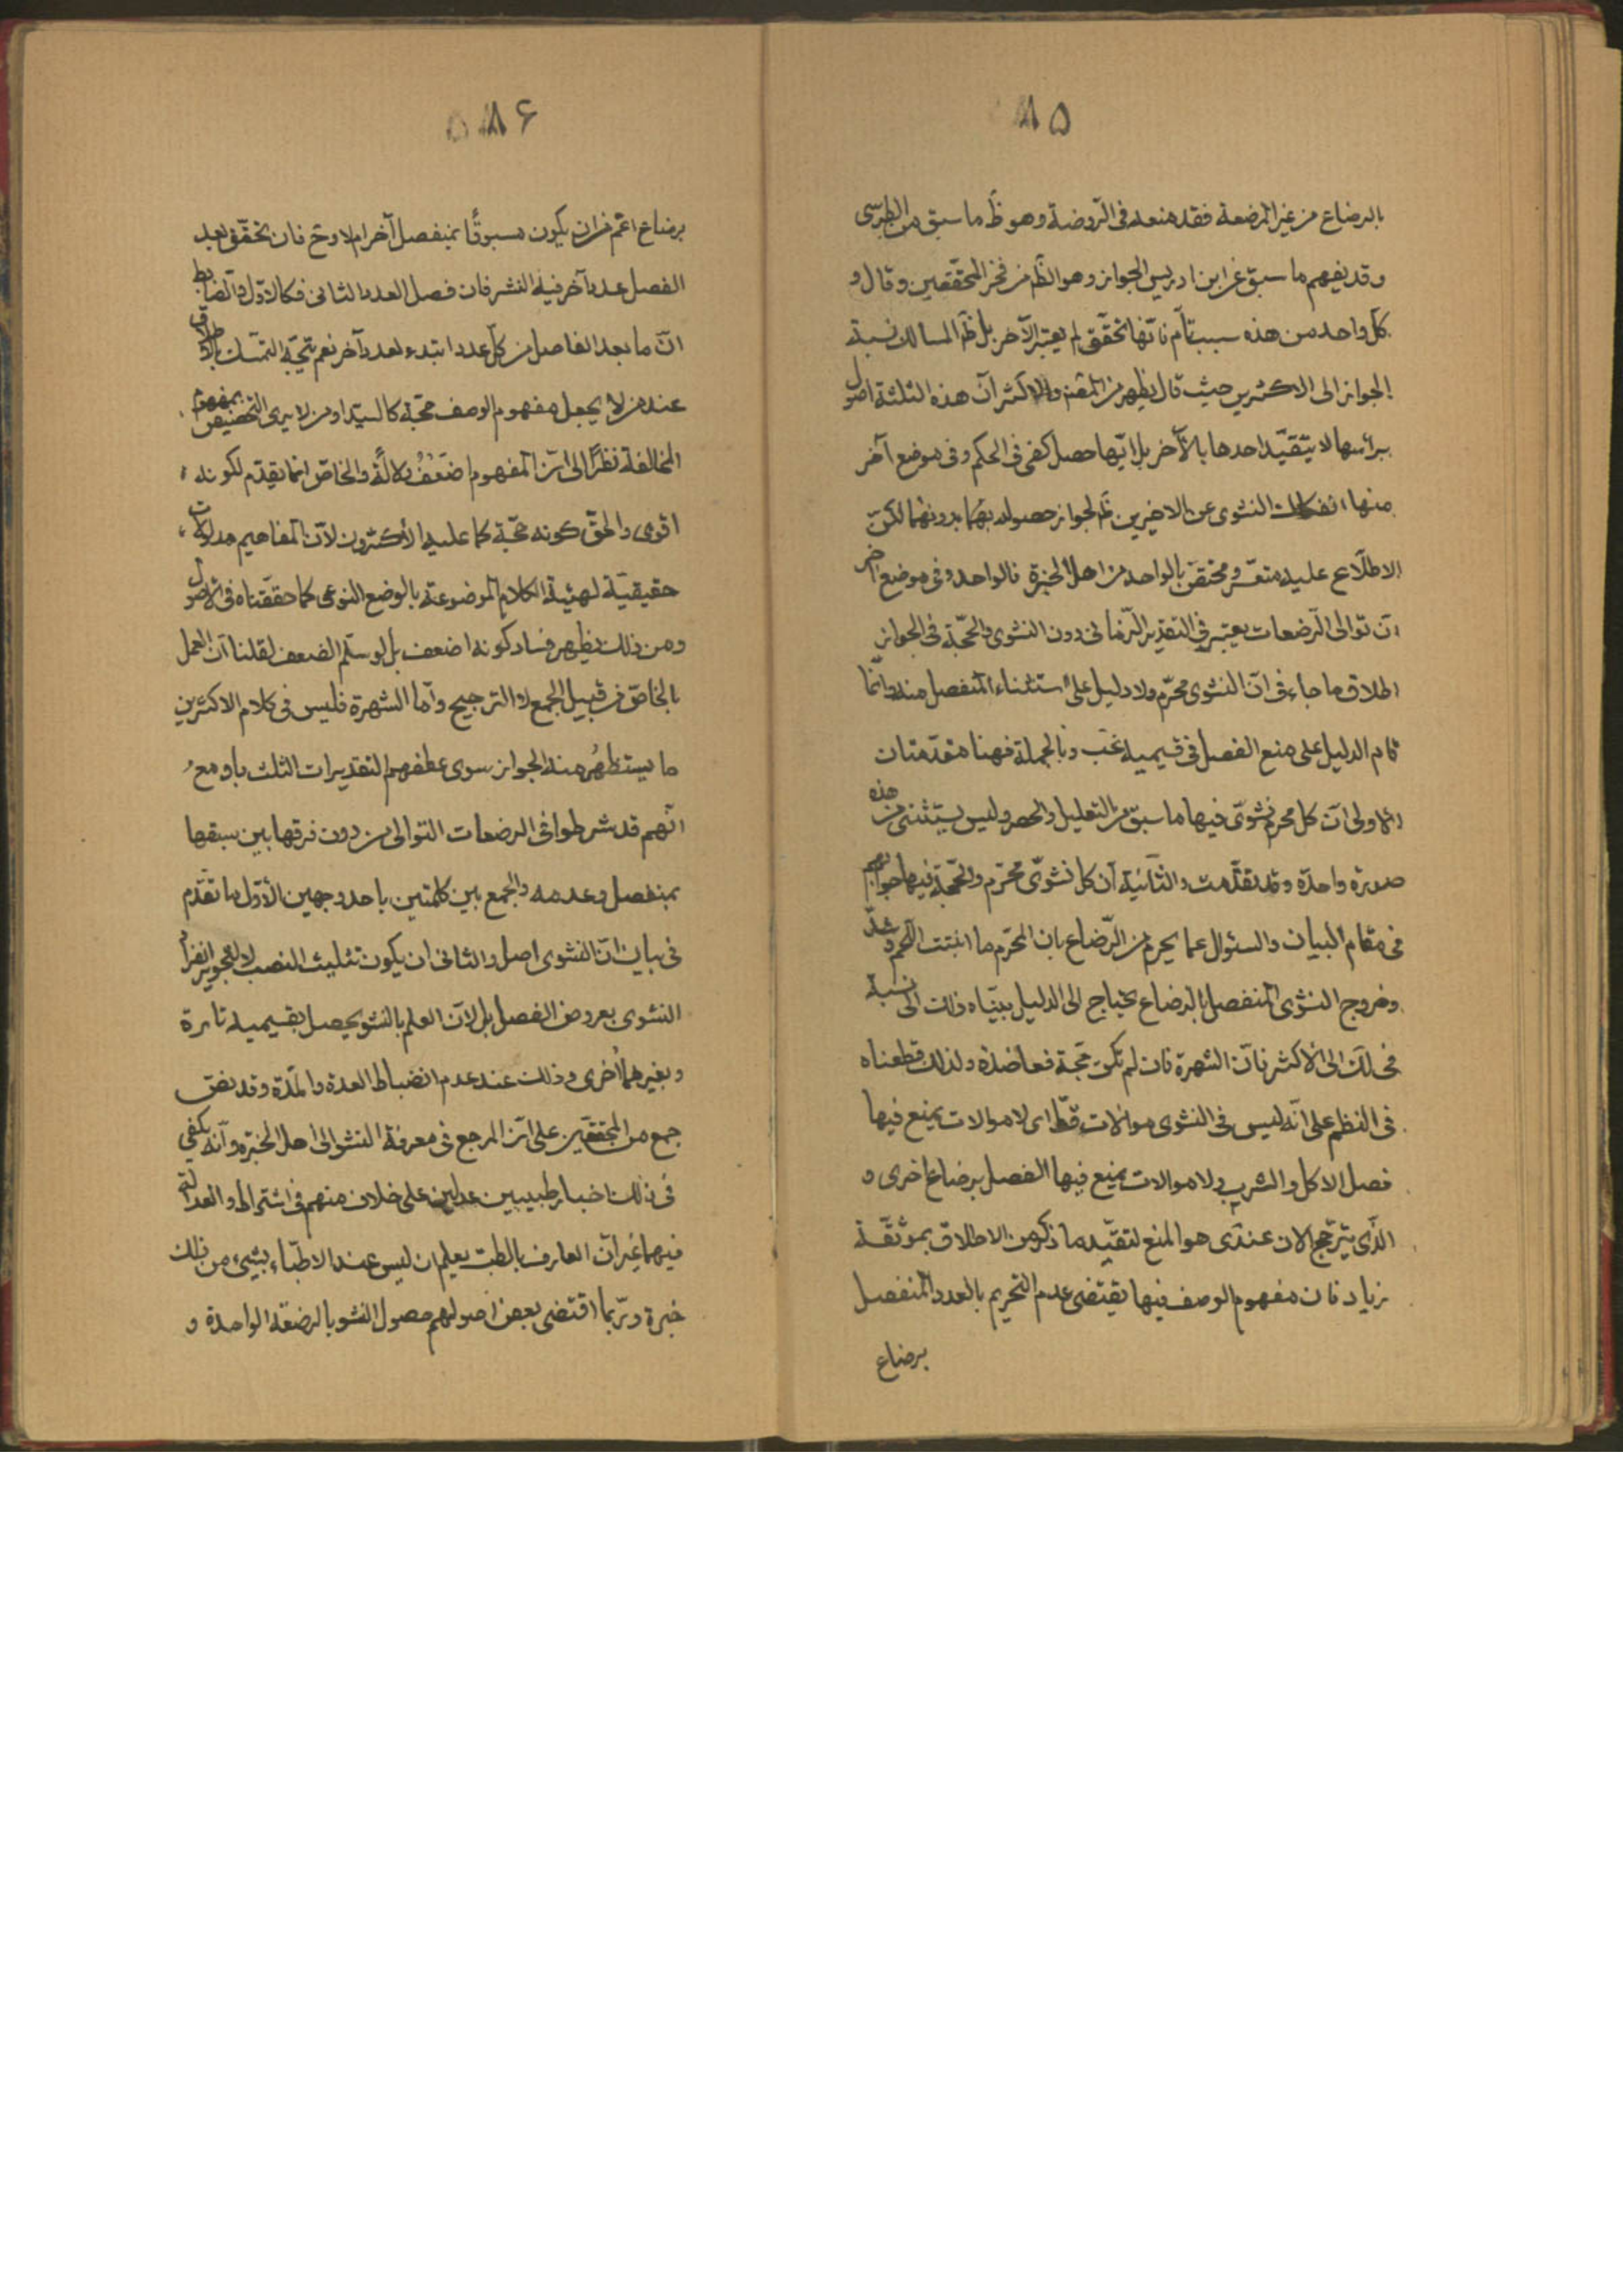 ٨٥
بالرضاع من غير المرضعة فقد منعه فى الروضة وهو ظ ما سبق من الطبرسى
وقد يفهم ما سبق عن ابن ادريس الجواز وهو الظم من فخر المحققين وقال و
كل واحد من هذه سبب تام فايها تحقق لم يعتبر الآخر بل ظم المسالك نسبة
الجواز الى الاكثرين حيث قال يظهر من والاكثر ان هذه الثلثة اصول
برأسها لا يتقيد احدها بالآخر بل ايها حصل كفى فى الحكم وفى موضع آخر
منها انفكاك النشوى عن الاخيرين ظم لجواز حصوله بهما بدونهما لكن
الاطلاع عليه متعسر ومختص بالواحد من اهل الخبرة فالواحد وفى موضع اخر
ان توالى الرضعات يعتبر فى التقدير الزمانى دون النشوى والحجة فى الجواز
اطلاق ما جاء فى ان النشوى محرم ولا دليل على استثناء المنفصل منه وانما
قام الدليل على منع الفصل فى قسيميه وبالجملة فهنا مقدمتان
الاولى ان كل محرم نشوى فيها ما سبق من التعليل والحصر وليس يستثنى من هذه
صورة واحدة وقد تقدمت والثانية ان كل نشوى محرم والحجة فيها جوابهم
فى مقام البيان والسئوال عما يحرم من الرضاع بان المحرم ما انبتت اللحم وشد
وخروج النشوى المنفصل بالرضاع يحتاج الى الدليل بيناه ذلك الى نسبة
فى لك الى الاكثر فان الشهرة فان لم تكن حجة فعاضدة ولذلك قطعناه
فى النظم على انه ليس فى النشوى موالات قط اى لا موالات يمنع فيها
فصل الاكل والشرب ولا موالات يمنع فيها الفصل برضاع اخرى و
الذى يترجح الان عندى هو المنع لتقييد ما ذكر من الاطلاق بموثقة
زياد فان مفهوم الوصف فيها يقتضى عدم التحريم بالعدد المنفصل
برضاع
٨۶
برضاع اعم من ان يكون مسبوقا بمنفصل آخر ام لا وح فان تحقق بعد
الفصل عدد آخر فيه النشر فان فصل العدد الثانى فكالاول والضابط
ان ما بعد الفاصل من كل عدد ابتداء لعدد آخر نعم يتجه التمسك بالاطلاق
عند من لا يجعل مفهوم الوصف حجة كالسيد او من لا يرى التخصيص بمفهوم
المخالفة نظرا الى ان المفهوم اضعف دلالة والخاص انما يقدم لكونه
اقوى والحق كونه حجة كما عليه الاكثرون لان المفاهيم مدلولات
حقيقية لهيئة الكلام الموضوعة بالوضع النوعى كما حققناه فى الاصول
ومن ذلك يظهر فساد كونه اضعف بل لو سلم الضعف لقلنا ان العمل
بالخاص من قبيل الجمع لا الترجيح واما الشهرة فليس فى كلام الاكثرين
ما يستظهر منه الجواز سوى عطفهم التقديرات الثلث باو مع
انهم قد شرطوا فى الرضعات التوالى من دون فرقها بين سبقها
بمنفصل وعدمه والجمع بين كلمتين باحد وجهين الاول ما تقدم
فى بيان ان النشوى اصل والثانى ان يكون تثليث النصب لا لتجويز انفراد
النشوى بعروض الفصل بل لان العلم بالنشو يحصل بقسيميه تارة
وبغيرهما اخرى وذلك عند عدم انضباط العدة والمدة وقد نص
جمع من المحققين على ان المرجع فى معرفة النشو الى اهل الخبرة وانه يكفى
فى ذلك اخبار طبيبين عدلين على خلاف منهم فى اشتراط والعدالة
فيهما غير ان العارف بالطب يعلم ان ليس عند الاطباء بشىء من ذلك
خبرة وربما اقتضى بعض اصولهم حصول النشو بالرضعة الواحدة و